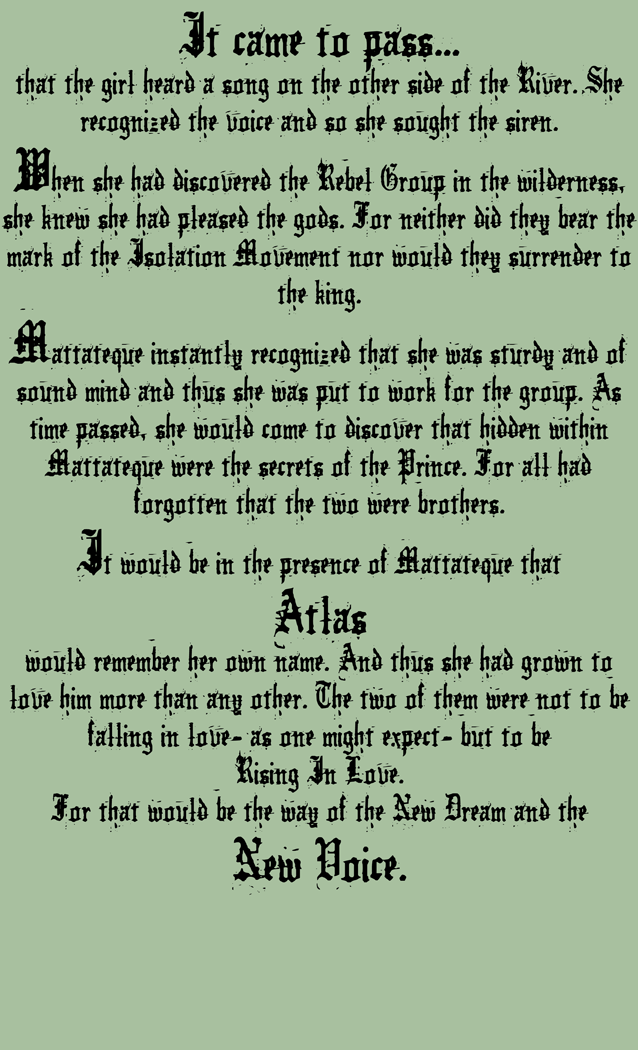 It came to pass...
that the girl heard a song on the other side of the River. She
recognized the voice and so she sought the siren.
When she had discovered the Rebel Group in the wilderness,
she knew she had pleased the gods. For neither did they bear the
mark of the Isolation Movement nor would they surrender to
the king.
Mattateque instantly recognized that she was sturdy and of
sound mind and thus she was put to work for the group. As
time passed, she would come to discover that hidden within
Mattateque were the secrets of the Prince. For all had
forgotten that the two were brothers.
It would be in the presence of Mattateque that
Atlas
would remember her own name. And thus she had grown to
love him more than any other. The two of them were not to be
falling in love- as one might expect- but to be
Rising In Love.
For that would be the way of the New Dream and the
New Voice.